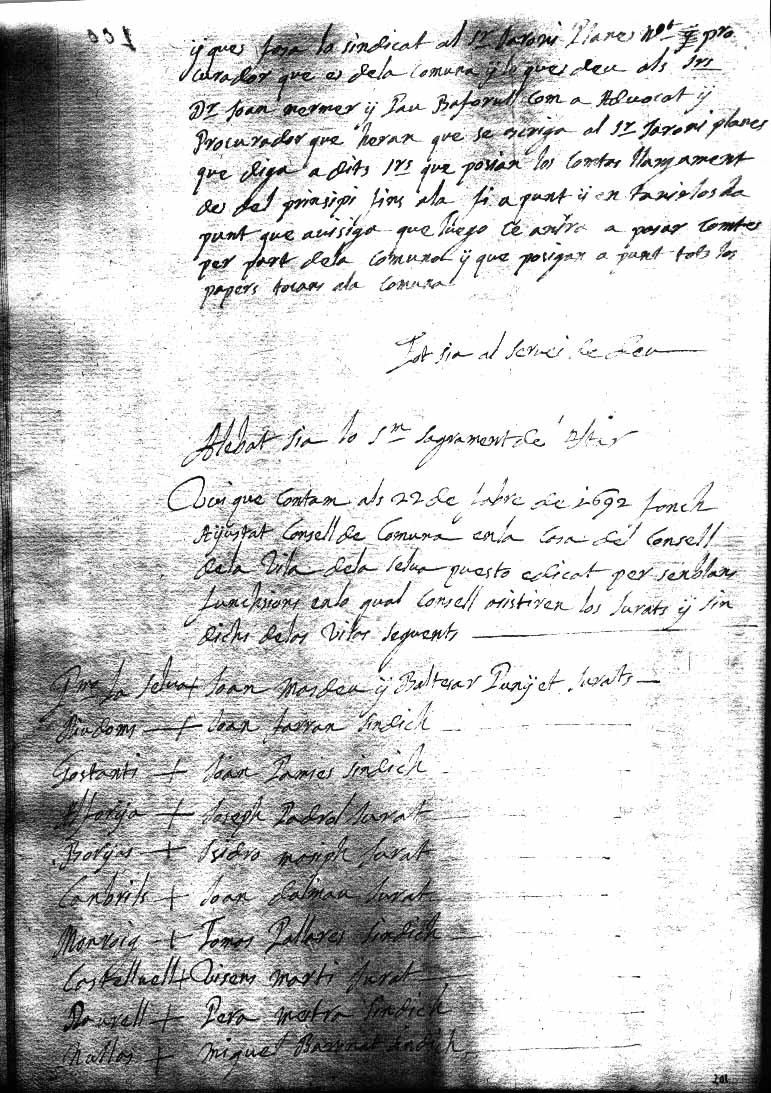 ÿ ques fasa la sindicat al Sr Jaroni Planes Not ÿ pro
curador que es dela Comuna ÿ lo ques deu als Srs
Dr Joan mermer ÿ Pau Baforull Com a Advocat ÿ
Procurador que heran que se escriga al Sr Jaroni planes
que diga a dits Srs que posian los Contes llargament
des del prinsipi fins ala fi a punt ÿ en tanirlos da
punt que avisiga que luego Ce anira a pasar Comtes
per part dela Comuna ÿ que posigan a punt tots los
papers tocans ala Comuna
Tot sia al servei de deu
Alebat sia lo Sm Sagrament de Altar
Vui que Contam als 22 de bre de 1692 fonch
Ajustat Consell de Comuna en la Casa del Consell
dela Vila dela Selva puesto edicat per senblans
funchsions enlo qual Consell asistiren los Jurats ÿ sin
dichs delas Vilas seguents
Pme La Selva + Joan Masdeu ÿ Baltesar Punÿet Jurats
Riudoms + Joan farran Sindich
Costanti + Joan Pames Sindich
Alforja + Joseph Padrol Jurat
Borjas + Isidro Jurat
Canbrils + Joan dalmau Jurat
Monroig + Tomas Pallares Sindich
Castellvell + Visens marti Jurat
Maurell + Pera mestra Sindich
+ Miquel Sindich
201